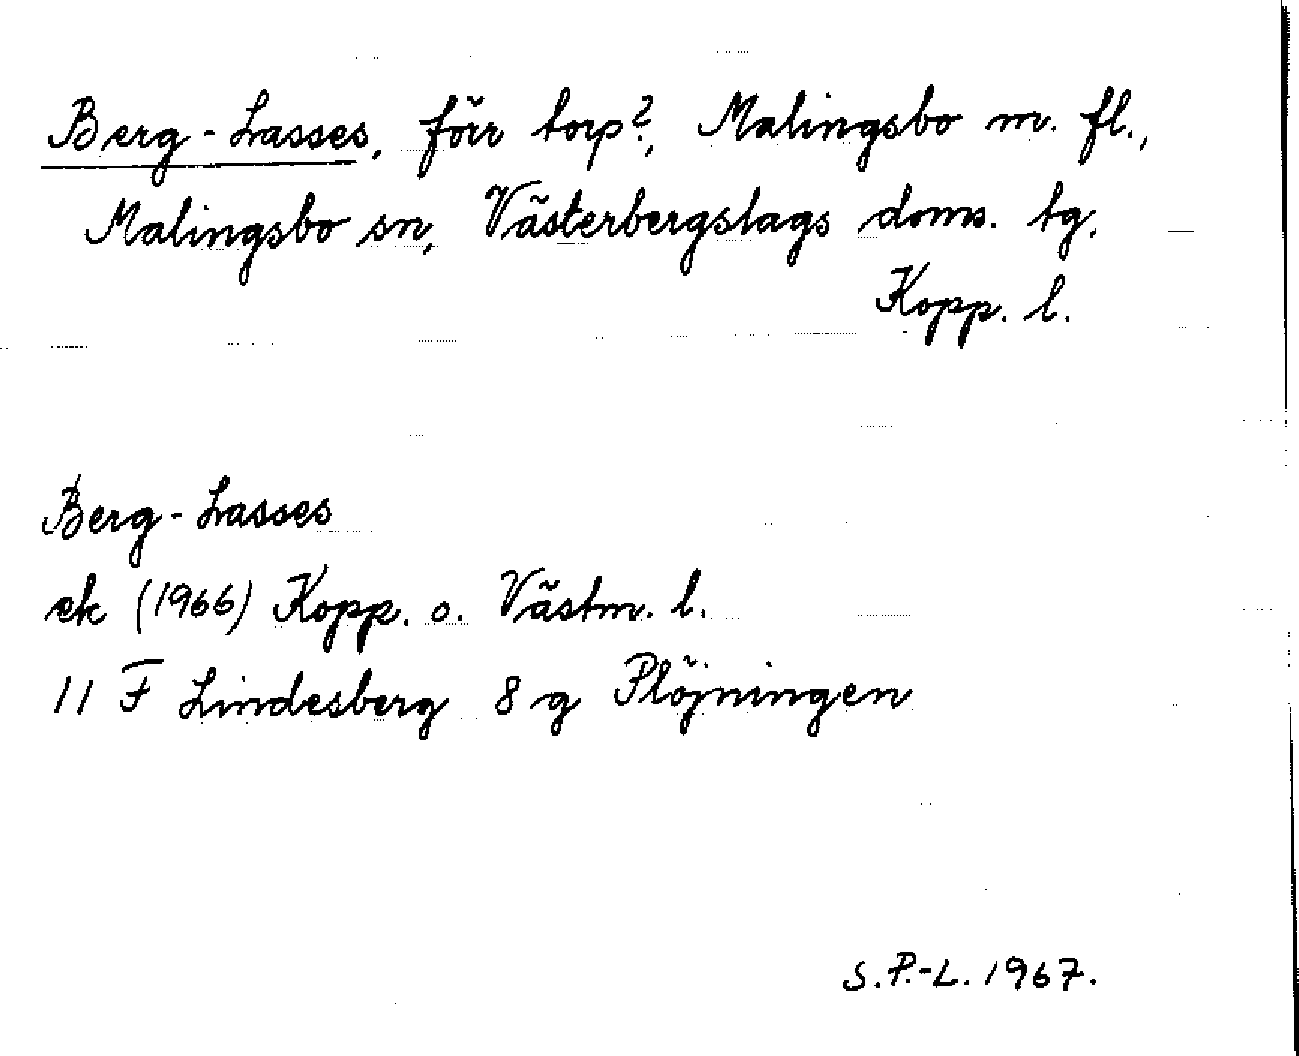 Berg-Lasses, förr torp?, Malingsbo m. fl.,
Malingsbo sn, Västerbergslags doms. tg.
Kopp. l.
Berg-Lasses
ek (1966) Kopp. o. Västm. l.
11 F Lindesberg 8 g Plöjningen
S.P.-L. 1967.